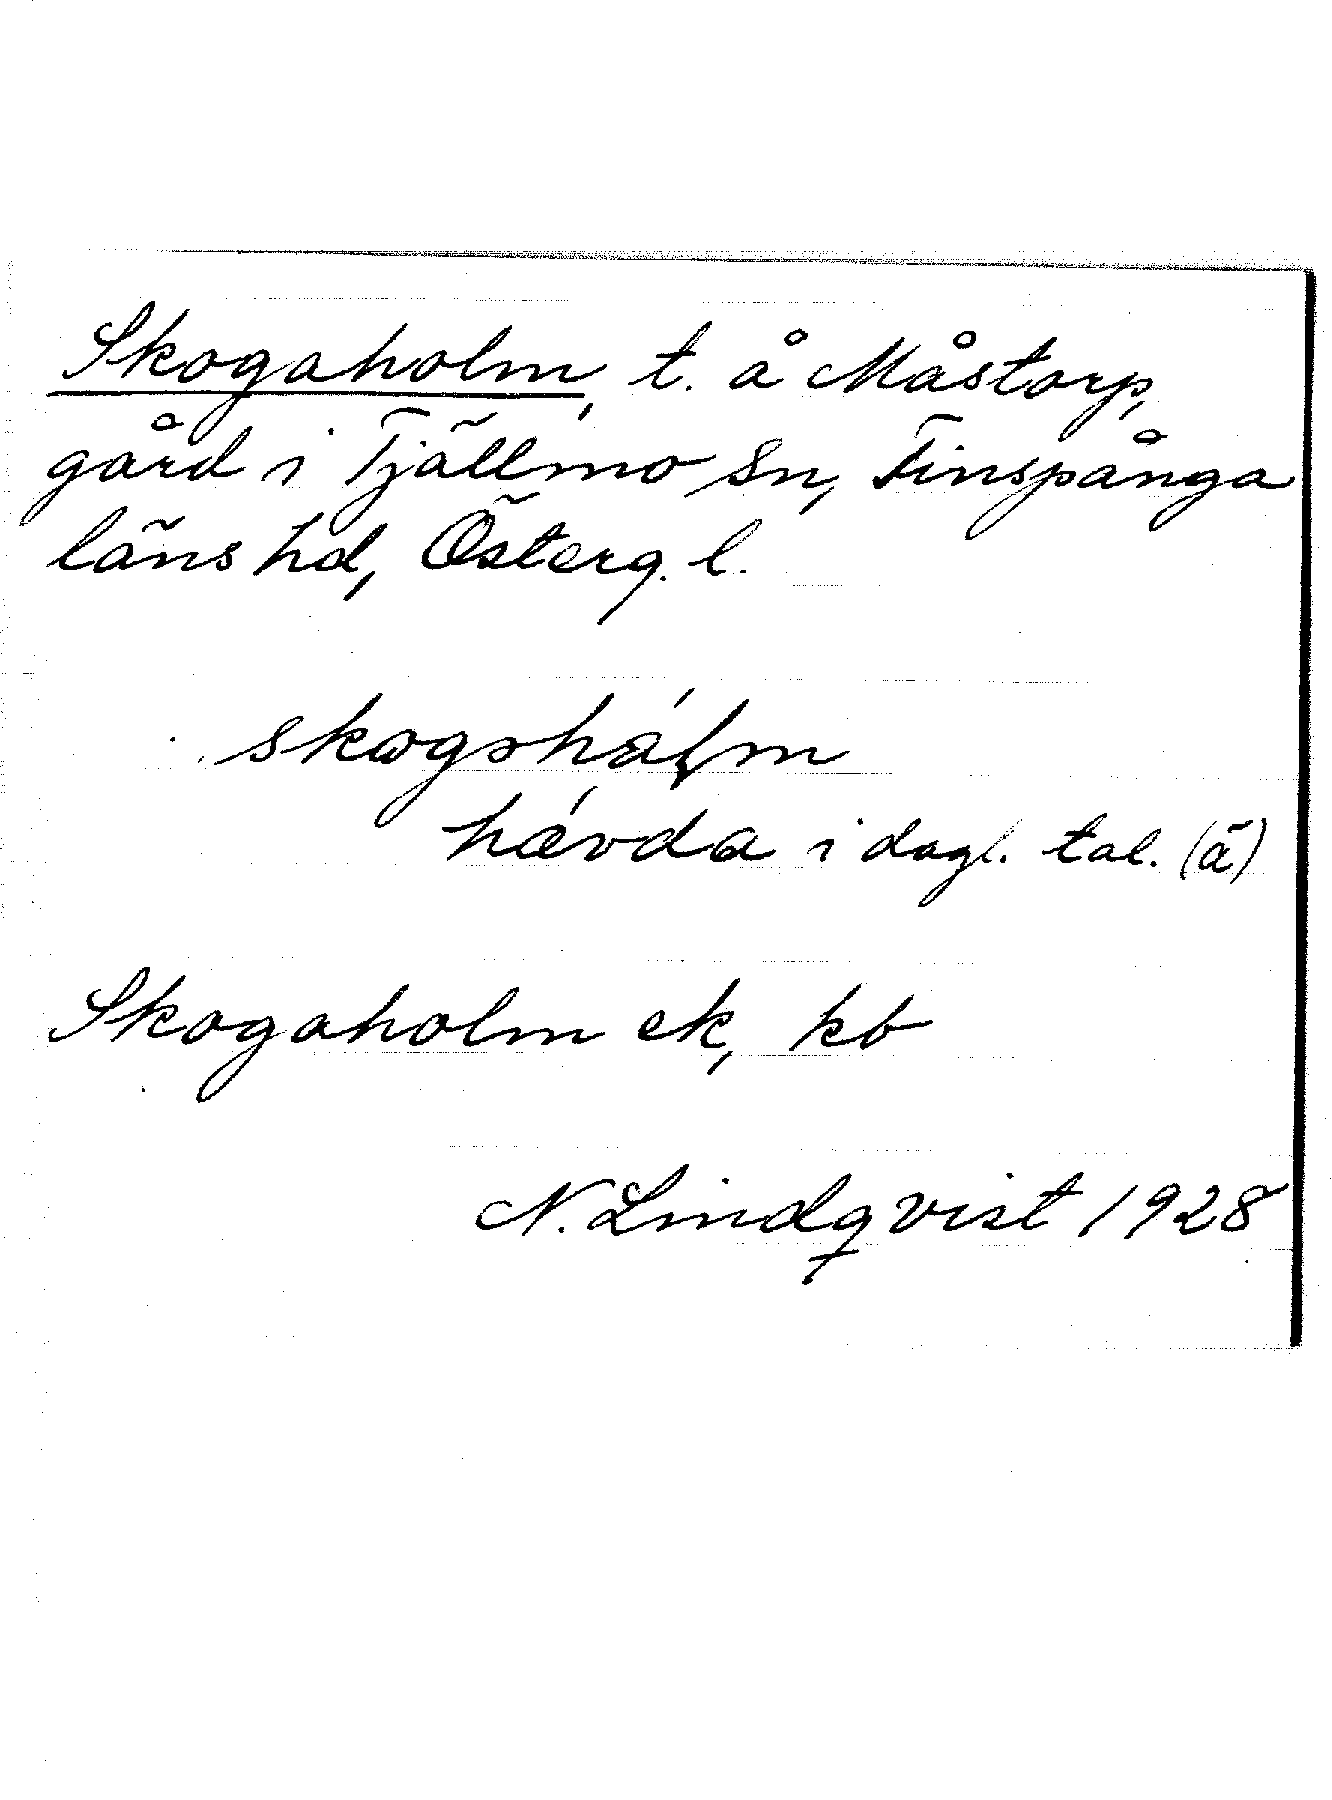 Skogaholm, t. å Måstorp,
gård i Tjällmo sn, Finspånga
läns hd, Österg. l.
skogəhálm
hǽvda i dagl. tal. (ä)
Skogaholm ek, kb
N. Lindqvist 1928